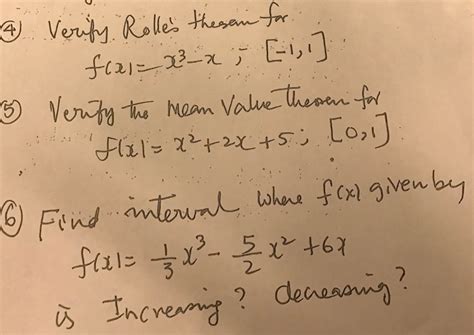 ④ Verify Rolle's theorem for
f(x) = x³ - x ; [-1, 1]
⑤ Verify the Mean Value theorem for
f(x) = x² + 2x + 5 ; [0, 1]
⑥ Find interval where f(x) given by
f(x) = 1/3 x³ - 5/2 x² + 6x
is Increasing? decreasing?